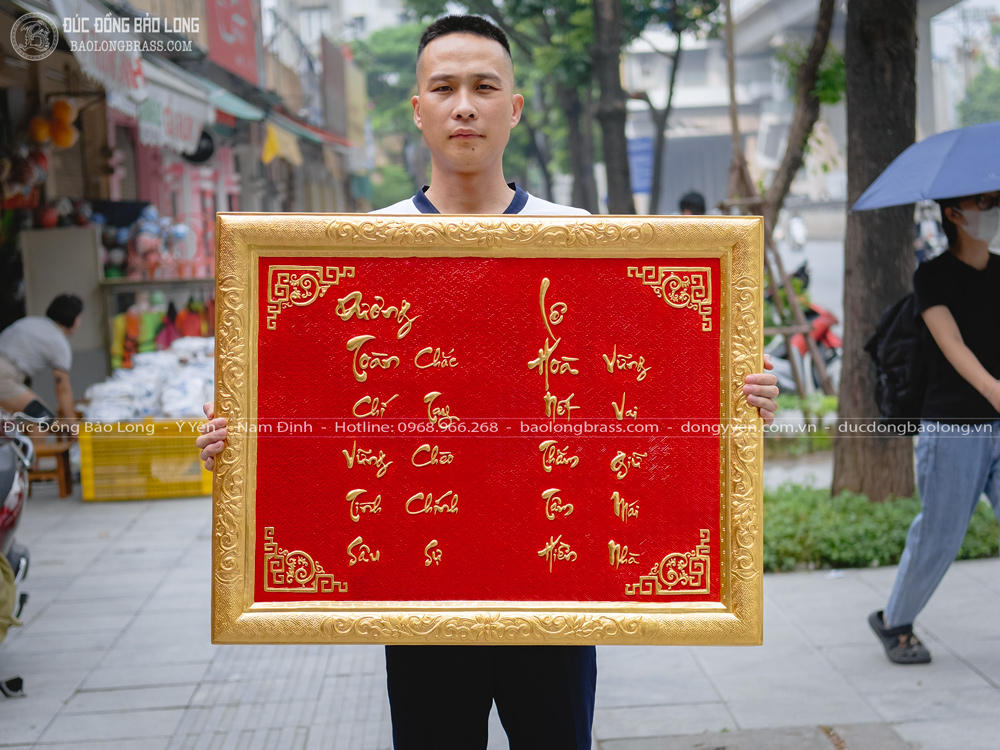 ĐÚC ĐỒNG BẢO LONG
BAOLONGBRASS.COM
Dương Lê
Toàn Chắc Hoà Vững
Chí Tay Nét Vai
Vững Chèo Thắm giữ
Tình Chính Tâm Mái
Sâu Sự Hiền Nhà
Đúc Đồng Bảo Long - Ý Yên - Nam Định - Hotline: 0968.966.268 - baolongbrass.com - dongyyen.com.vn - ducdongbaolong.vn